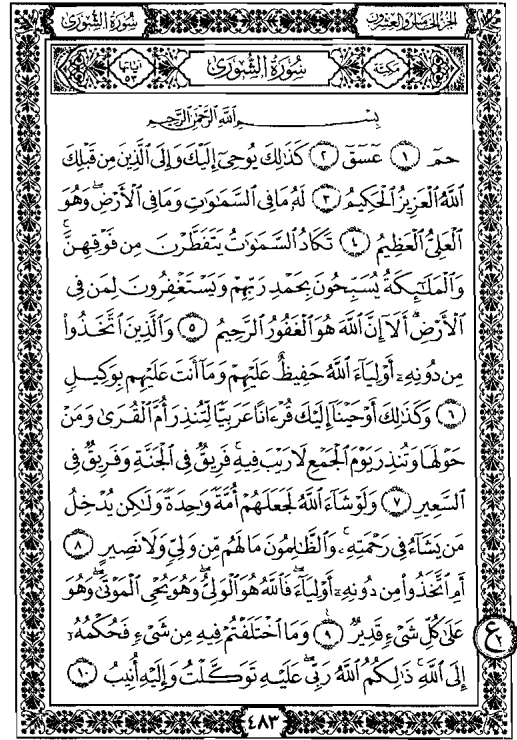 الجزء الخامس والعشرون
سورة الشورى
مكية
سُورَةُ الشُّورَىٰ
آياتها ٥٣
بِسْمِ اللَّهِ الرَّحْمَٰنِ الرَّحِيمِ
حمٓ ١ عٓسٓقٓ ٢ كَذَٰلِكَ يُوحِىٓ إِلَيْكَ وَإِلَى ٱلَّذِينَ مِن قَبْلِكَ
ٱللَّهُ ٱلْعَزِيزُ ٱلْحَكِيمُ ٣ لَهُۥ مَا فِى ٱلسَّمَٰوَٰتِ وَمَا فِى ٱلْأَرْضِ ۖ وَهُوَ
ٱلْعَلِىُّ ٱلْعَظِيمُ ٤ تَكَادُ ٱلسَّمَٰوَٰتُ يَتَفَطَّرْنَ مِن فَوْقِهِنَّ ۚ
وَٱلْمَلَٰٓئِكَةُ يُسَبِّحُونَ بِحَمْدِ رَبِّهِمْ وَيَسْتَغْفِرُونَ لِمَن فِى
ٱلْأَرْضِ ۗ أَلَآ إِنَّ ٱللَّهَ هُوَ ٱلْغَفُورُ ٱلرَّحِيمُ ٥ وَٱلَّذِينَ ٱتَّخَذُوا۟
مِن دُونِهِۦٓ أَوْلِيَآءَ ٱللَّهُ حَفِيظٌ عَلَيْهِمْ وَمَآ أَنتَ عَلَيْهِم بِوَكِيلٍ
٦ وَكَذَٰلِكَ أَوْحَيْنَآ إِلَيْكَ قُرْءَانًا عَرَبِيًّا لِّتُنذِرَ أُمَّ ٱلْقُرَىٰ وَمَنْ
حَوْلَهَا وَتُنذِرَ يَوْمَ ٱلْجَمْعِ لَا رَيْبَ فِيهِ ۚ فَرِيقٌ فِى ٱلْجَنَّةِ وَفَرِيقٌ فِى
ٱلسَّعِيرِ ٧ وَلَوْ شَآءَ ٱللَّهُ لَجَعَلَهُمْ أُمَّةً وَٰحِدَةً وَلَٰكِن يُدْخِلُ
مَن يَشَآءُ فِى رَحْمَتِهِۦ ۚ وَٱلظَّٰلِمُونَ مَا لَهُم مِّن وَلِىٍّ وَلَا نَصِيرٍ ٨
أَمِ ٱتَّخَذُوا۟ مِن دُونِهِۦٓ أَوْلِيَآءَ ۖ فَٱللَّهُ هُوَ ٱلْوَلِىُّ وَهُوَ يُحْىِ ٱلْمَوْتَىٰ وَهُوَ
عَلَىٰ كُلِّ شَىْءٍ قَدِيرٌ ٩ وَمَا ٱخْتَلَفْتُمْ فِيهِ مِن شَىْءٍ فَحُكْمُهُۥٓ
إِلَى ٱللَّهِ ۚ ذَٰلِكُمُ ٱللَّهُ رَبِّى عَلَيْهِ تَوَكَّلْتُ وَإِلَيْهِ أُنِيبُ ١٠
ع
٤٨٣